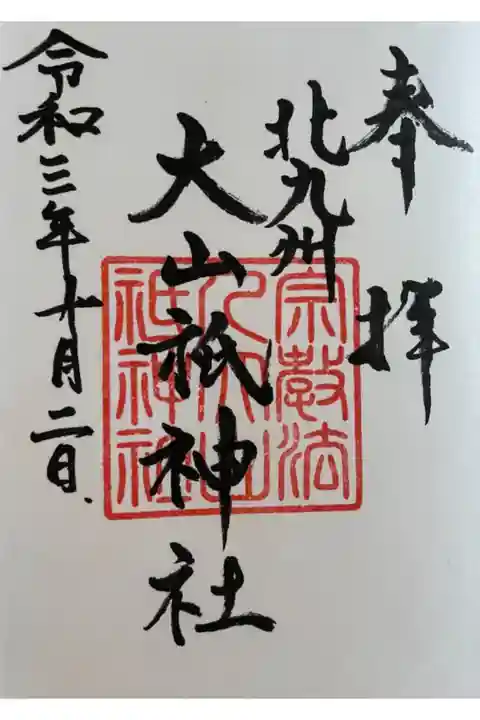 奉拝
北九州
大山祇神社
令和三年十月二日
宗教法
人大山
祇神社